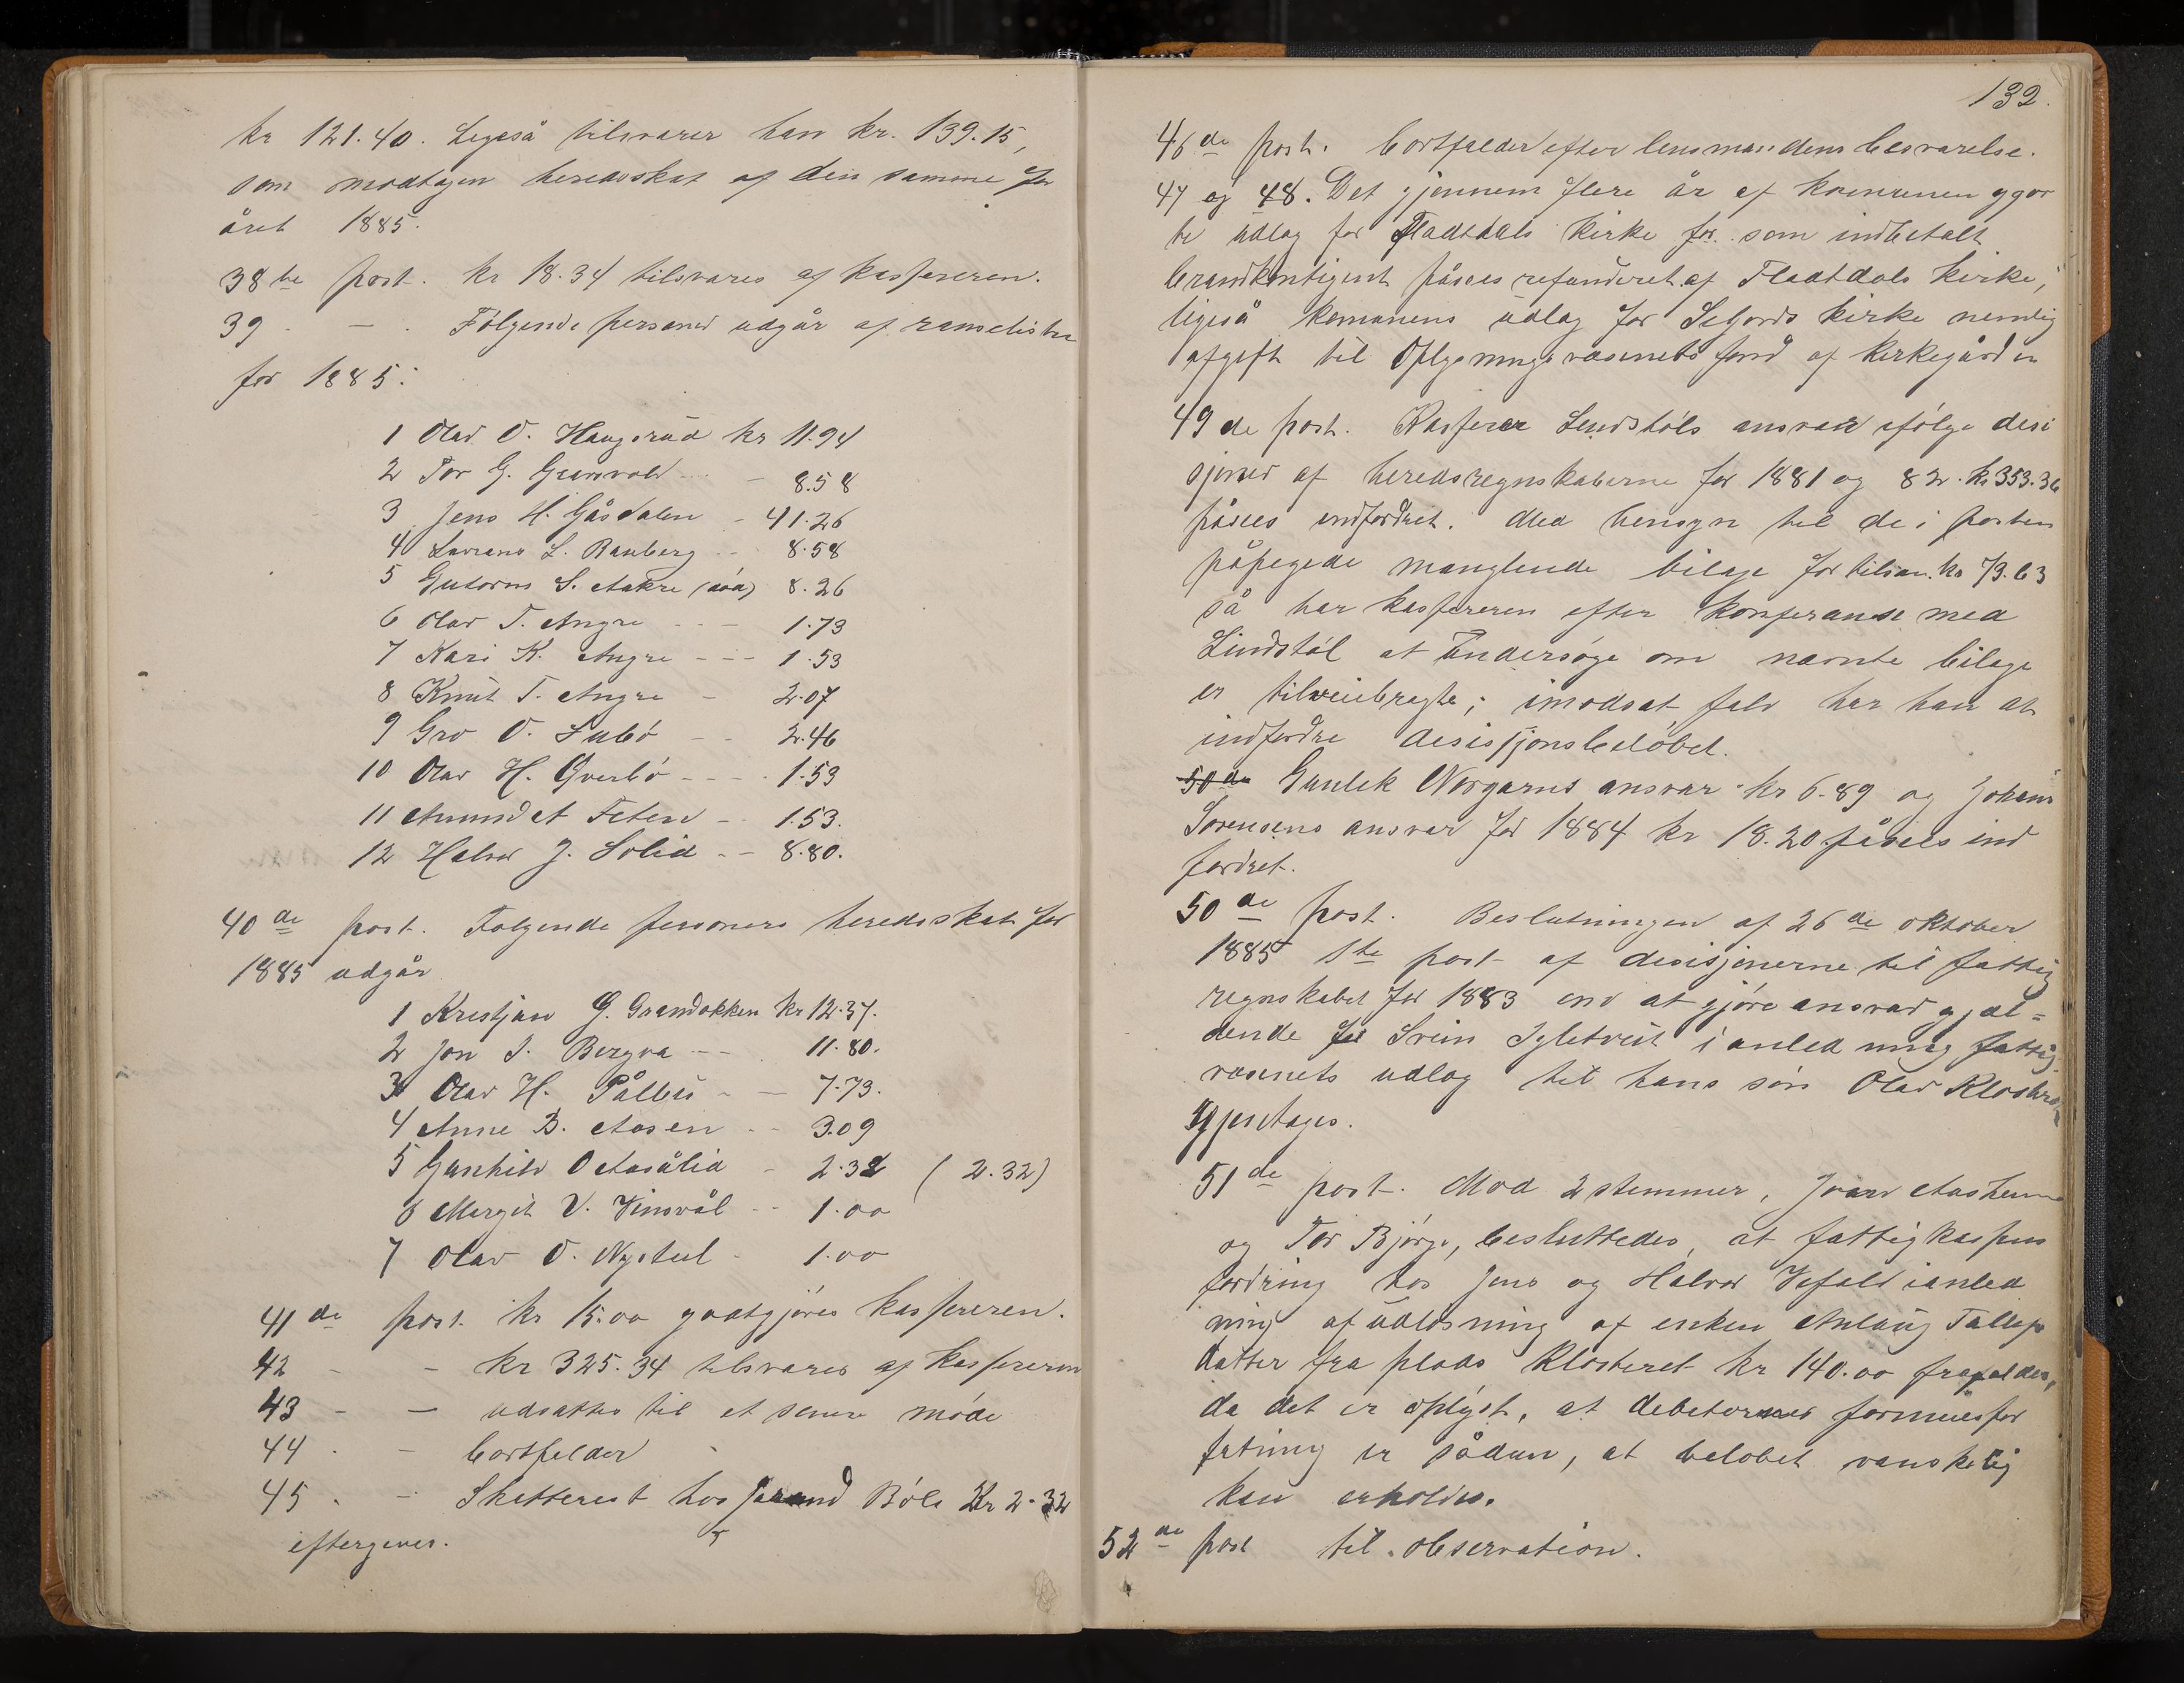 kr 121.40. Ligeså tilsvarer han kr. 139.15,
som modtagen heredsskat af den samme for
året 1885.
38te post. kr 18.34 tilsvares af kassereren.
39 - — . Følgende personer udgår af ranselisten
for 1885:
1 Olav O. Haugsrud kr 11.94
2 Tor G. Grannvold - - 8.58
3 Jens H. Gåsdalen - 41.26
4 Lavrans L. Rauberg - - 8.58
5 Gutorm S. Aakre (død) 8.26
6 Olav T. Angre - - - 1.73
7 Kari K. Angre - - - 1.53
8 Knut T. Angre - 2.07
9 Gro O. - - 2.46
10 Olav H. Øverbø - - - 1.53
11 Amund A Feten - - 1.53.
12 Halvor J. Solid - - 8.80.
40de post. Følgende personers heredsskat for
1885 udgår
1 Krestjan G. Grandokken kr 12.37.
2 Jon S. Bergva - - . 11.80.
3 Olav H. Pålbu - — 7.73.
4 Anne B. Aasen - - 3.09
5 Gunhild O Aasålid - 2.32 (2.32)
6 Margit V. Vinsvål - - 1.00
7 Olav O. Nystul - 1.00
41de post. kr 15.00 godtgjøres kassereren.
42 - - kr 325.34 tilsvares af kassereren
43 - — udsattes til et senere møde
44 . - bortfalder
45 . - Skatterest hos Bøle Kr 2.32
eftergives.
132.
46de post. bortfalder efter lensmandens besvarelse.
47 og 48. Det gjennem flere år af komunen gjor
te udlag for Fladdals kirke for som indbetalt
brandkontigent påsees refunderet af Fladdals kirke,
ligeså komunens udlag for Seljords kirke nemlig
afgift til Oplysningsvæsenets fond af kirkegården
49de post. Kasserer Lindstøls ansvar ifølge desi
sjoner af heredsregnskaberne for 1881 og 82. kr 353.36
påsees indfordret. Med hensyn til de i posten
påpegede manglende bilage for tilsam. kr 73.63
så har kassereren efter konferanse med
Lindstøl at undersøge om nævnte bilage
er tilveiebragte; imodsat fald har han at
indfordre desisjonsbeløbet.
50de Gunlek Norgarns ansvar kr 6.89 og Johans
Sørensens ansvar for 1884 kr 18.20 påsees ind
fordret.
50de post. Beslutningen af 26de oktober
1885 1ste post af desisjonerne til fattig
regnskabet for 1883 om at gjøre ansvar gjæl=
dende for Svein Igletveit i anledning fattig
væsenets udlag til hans søn Olav Klosteret
opretages.
51de post. Mod 2 stemmer, Ivar Aasheim
og Tor Bjørge, besluttedes, at fattigkassens
fordring hos Jens og Halvor Vefald i anled
ning af udløsning af enken Anlaug Tallefs
datter fra plads Klosteret kr 140.00 frafaldes,
da det er oplyst, at debetorernes formuesfor
fatning er sådan, at beløbet vanskelig
kan erholdes.
52de post til observation.